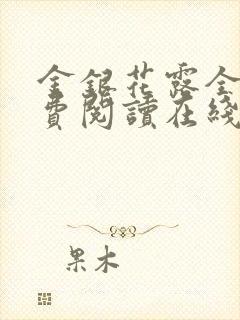 金銀花露全
費閱讀在綫
果木